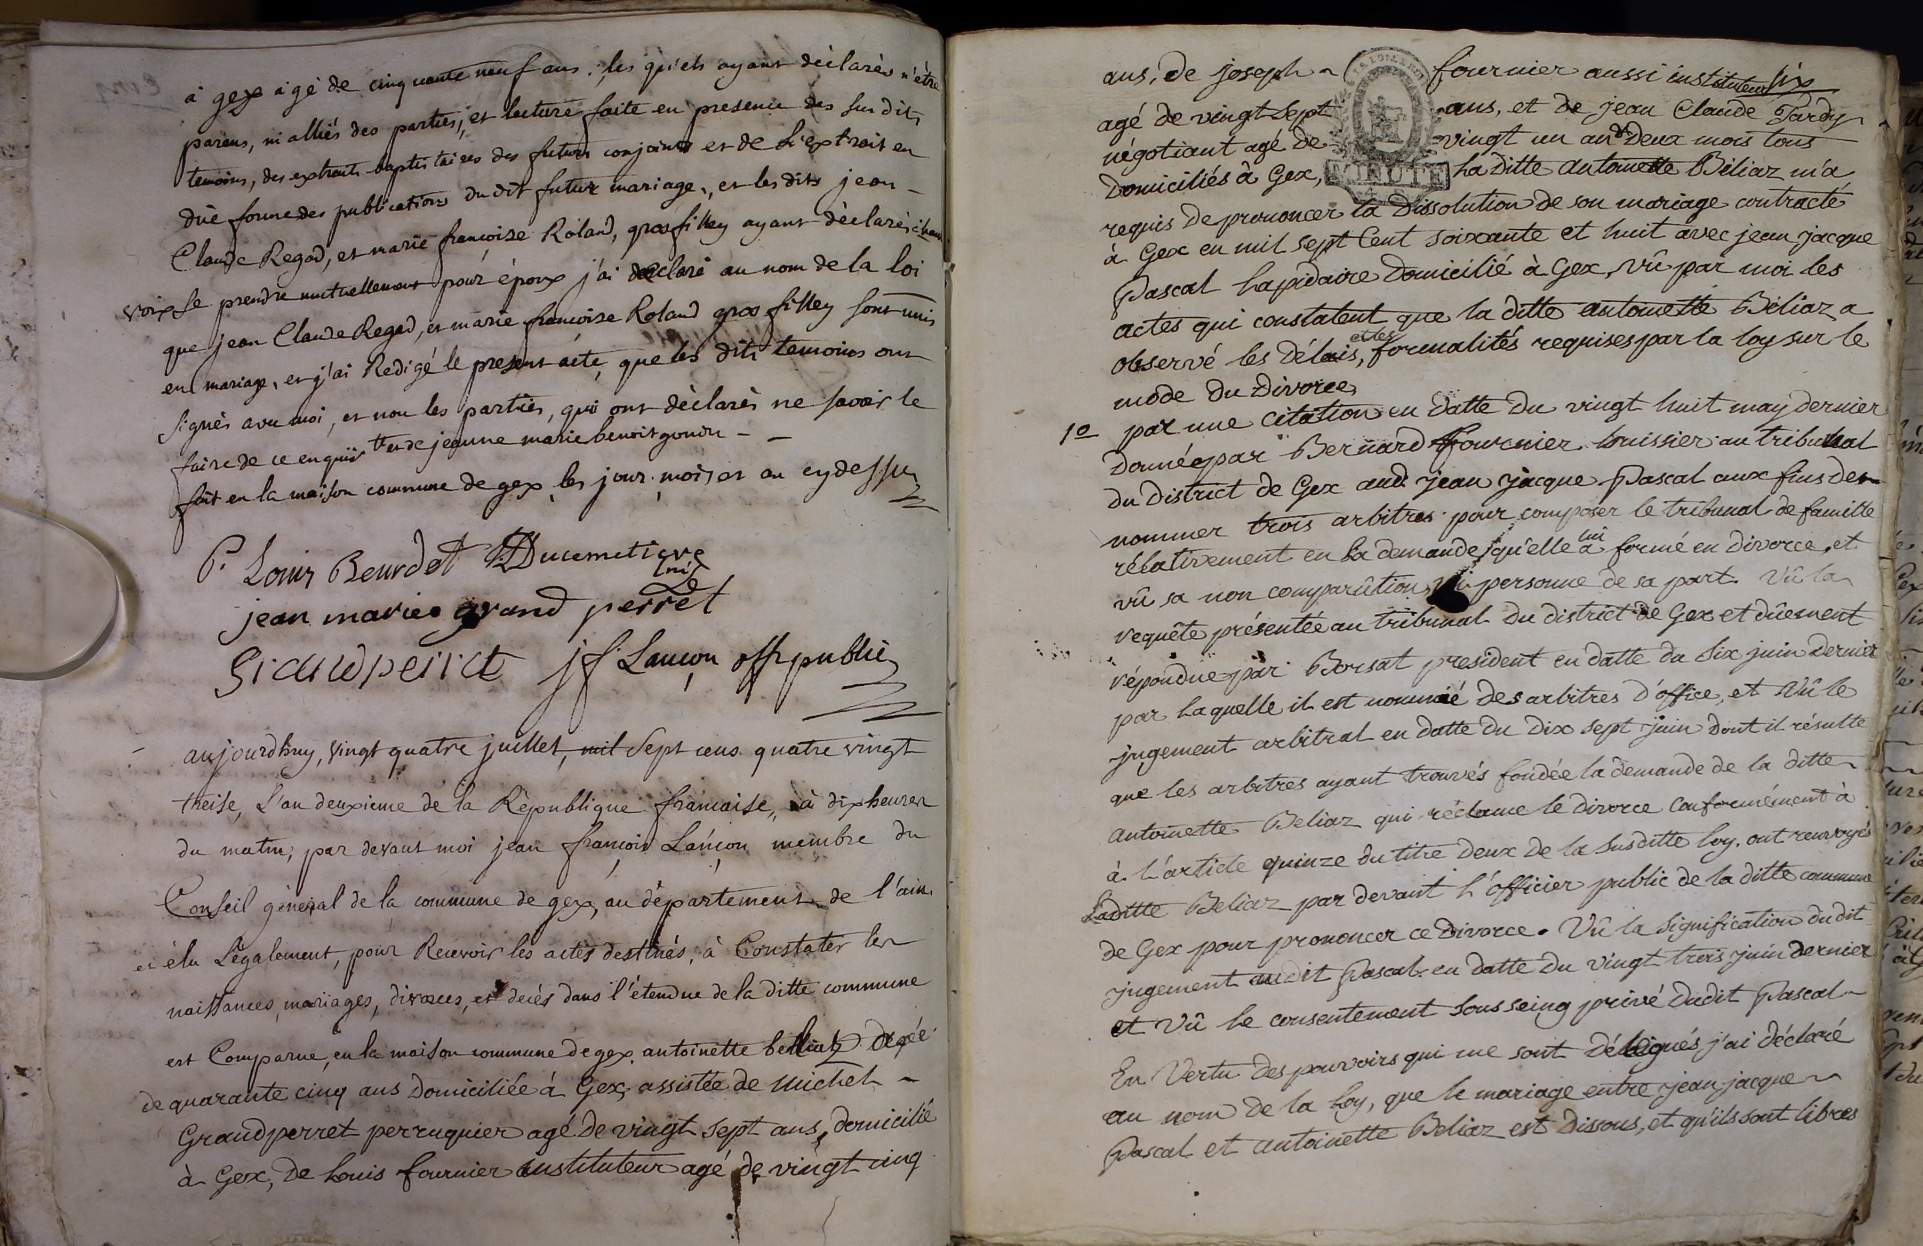 à gex agé de cinquante neuf ans, les quels ayant déclarés n'être
parens, ni alliés des parties, et lecture faite en presence des sus dits
temoins, des extraits baptistaires des futurs conjoints et de l'extrait en
düe forme des publications du dit futur mariage, et les dits jean
Claude Regad, et marie francoise Roland, grosfilley ayant déclarés à haute
voix se prendre mutuellement pour époux j'ai déclaré au nom de la loi
que jean Claude Regad, et marie francoise Roland gros filley sont unis
en mariage, et j'ai Redigé le present acte, que les dits temoins ont
signés avec moi, et non les parties, qui ont déclarés ne savoir le
faire de ce enquis et de jeanne marie benoit gonin
fait en la maison commune de gex les jour, mois et an cy dessus
P. Louis Beurdet Ducimetiere
jean marie grand perret
Grandperret jf Lançon off public
aujourdhuy, vingt quatre juillet, mil sept cens quatre vingt
treise, L'an deuxieme de la République francaise, à dix heures
du matin, par devant moi jean françois Lançon membre du
Conseil général de la commune de gex, au département de l'ain,
et élu Légalement, pour Recevoir les actes destinés, à Constater les
naissances, mariages, divorces, et decés dans l'étendue de la ditte commune
est Comparue, en la maison commune de gex, antoinette beliaz agée
de quarante cinq ans domiciliée à Gex, assistée de michel
Grandperret perruquier agé de vingt sept ans, domicilié
à Gex, de Louis fournier instituteur agé de vingt cinq
six
ans, de joseph fournier aussi instituteur
agé de vingt sept ans, et de jean Claude Tardy
négotiant agé de vingt un an deux mois tous
domiciliés à Gex, La ditte antoinette Béliaz m'a
requis de prononcer la dissolution de son mariage contracté
à Gex en mil sept Cent soixante et huit avec jean jacque
Pascal Lapidaire domicilié à Gex, vû par moi les
actes qui constatent que la ditte antoinette Béliaz a
observé les délais, et les formalités requises par la loy sur le
mode du divorce
1o par une citation en datte du vingt huit may dernier
donnée par Bernard Fournier huissier au tribunal
du district de Gex aud. jean jacque Pascal aux fins de
nommer trois arbitres pour composer le tribunal de famille
rélativement en la demande qu'elle lui a formé en divorce, et
vû sa non comparution ni personne de sa part. Vû la
requête présentée au tribunal du district de Gex et dûement
répondue par Borsat president en datte du six juin dernier
par laquelle il est nommé des arbitres d'office, et Vû le
jugement arbitral en datte du dix sept juin dont il résulte
que les arbitres ayant trouvés fondée la demande de la ditte
antoinette Beliaz qui réclame le divorce conformément à
à l'article quinze du titre deux de la susditte loy, ont renvoyés
Laditte Beliaz par devant l'officier public de la ditte commune
de Gex pour prononcer ce divorce. Vû la signification dudit
jugement audit Pascal en datte du vingt trois juin dernier
et vû le consentement sous seing privé dudit Pascal
En Vertu des pouvoirs qui me sont délégués j'ai déclaré
au nom de la Loy, que le mariage entre jean jacque
Pascal et antoinette Beliaz est dissous, et qu'ils sont libres